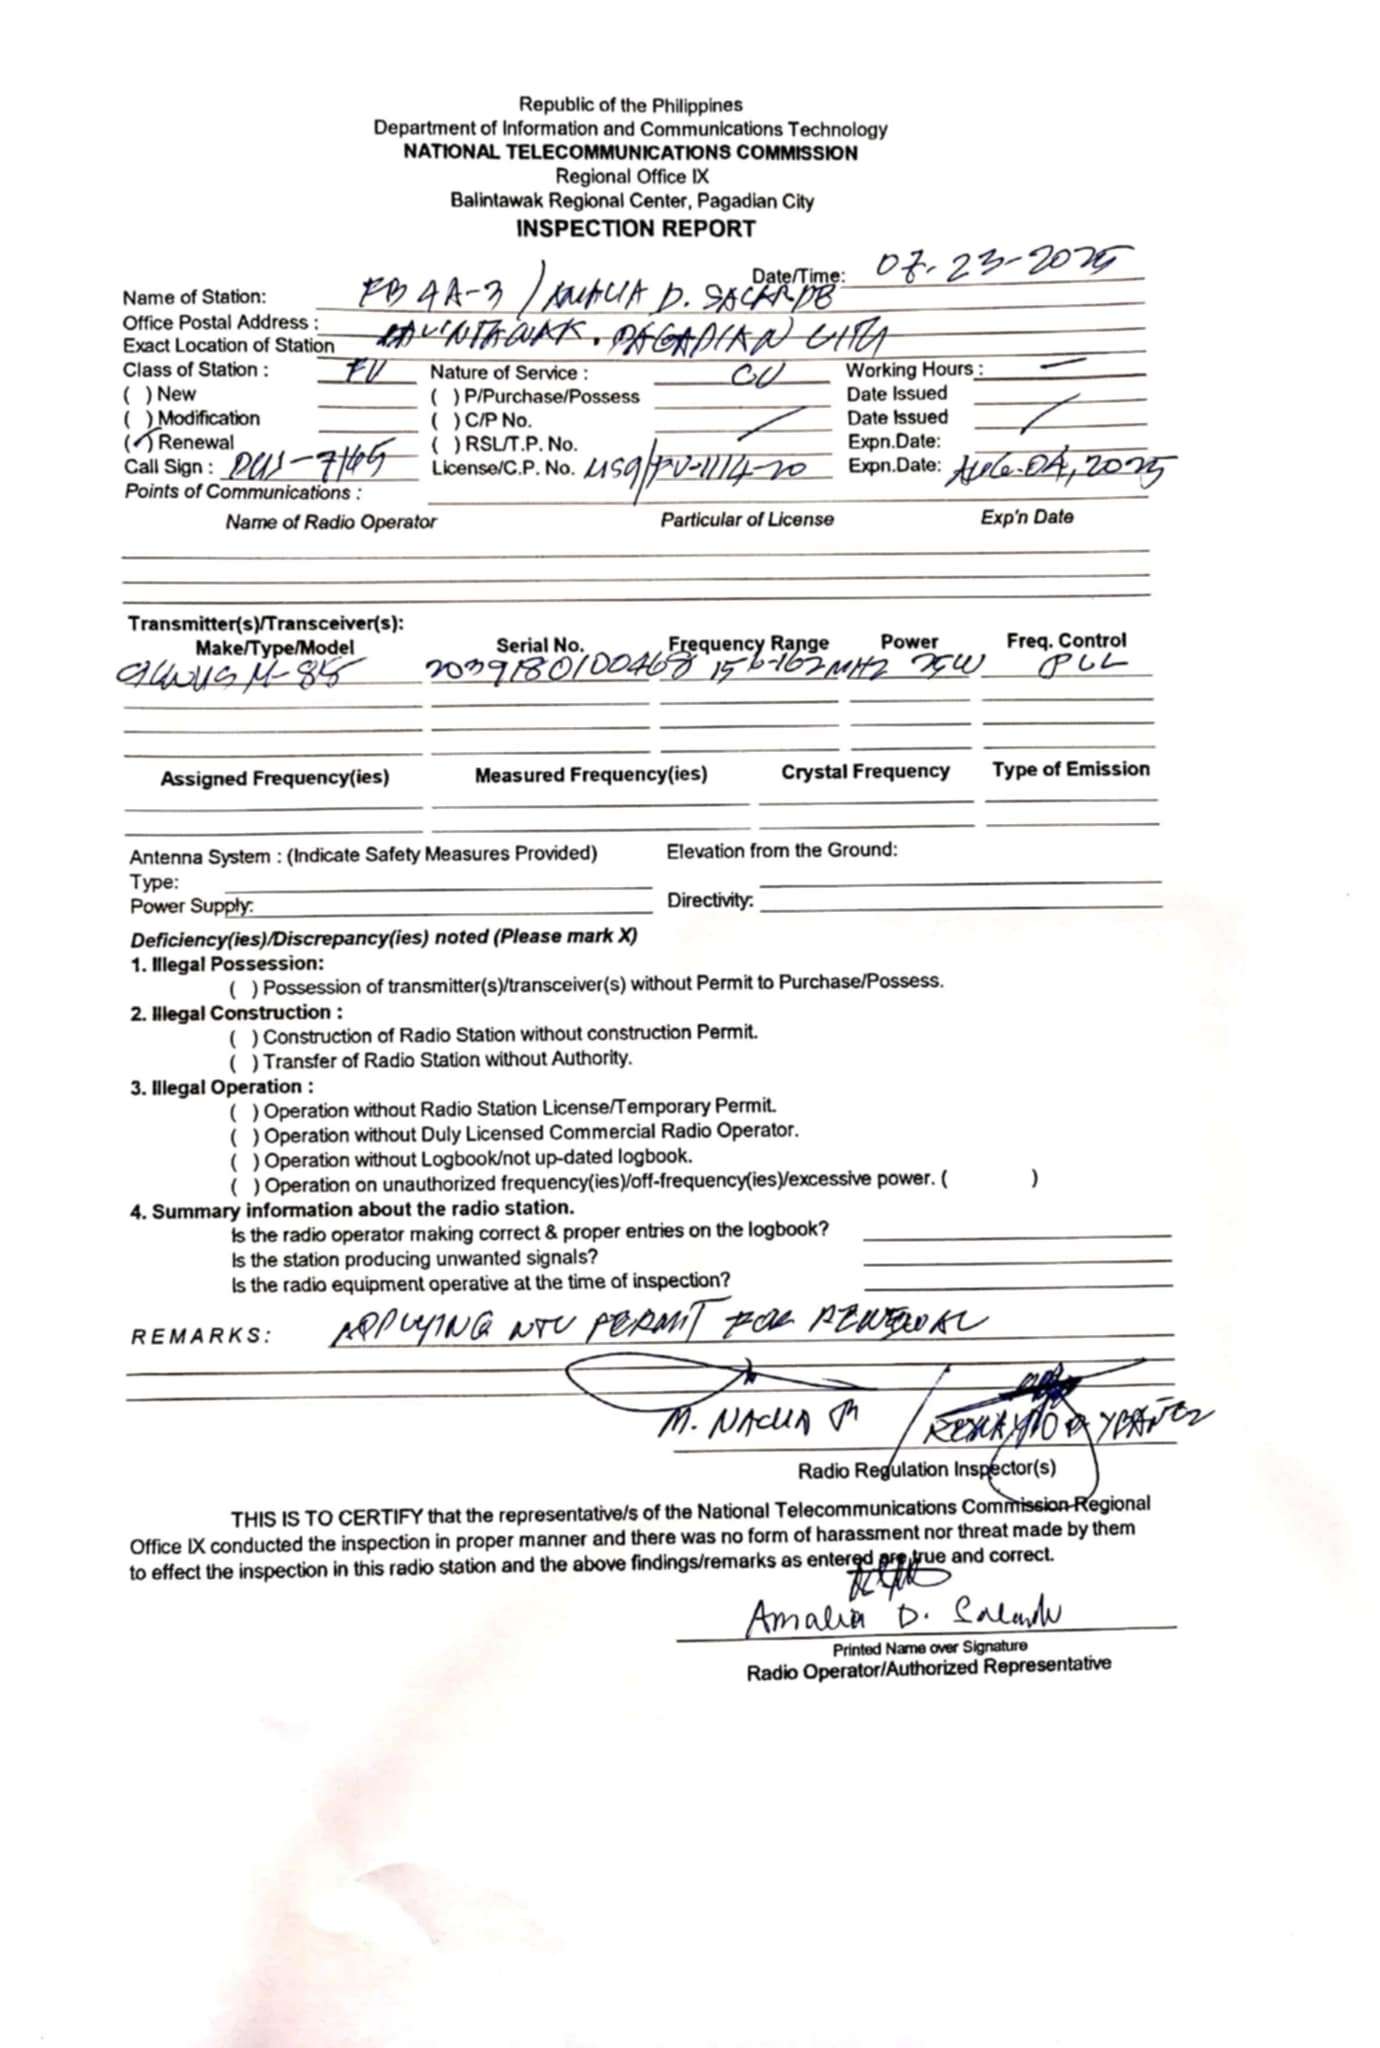 Republic of the Philippines
Department of Information and Communications Technology
NATIONAL TELECOMMUNICATIONS COMMISSION
Regional Office IX
Balintawak Regional Center, Pagadian City
INSPECTION REPORT
Date/Time: 07-23-2025
Name of Station: FB 4A-3 / AMALIA D. 
Office Postal Address :
Exact Location of Station PAGADIAN CITY
Class of Station : Nature of Service : Working Hours : —
( ) New ( ) P/Purchase/Possess Date Issued
( ) Modification ( ) C/P No. Date Issued
(✓) Renewal ( ) RSL/T.P. No. Expn.Date:
Call Sign : License/C.P. No. Expn.Date: AUG. 04, 2025
Points of Communications :
Name of Radio Operator Particular of License Exp'n Date
Transmitter(s)/Transceiver(s):
Make/Type/Model Serial No. Frequency Range Power Freq. Control
M-85 2039180100468 156-162 MHZ 25W PLL
Assigned Frequency(ies) Measured Frequency(ies) Crystal Frequency Type of Emission
Antenna System : (Indicate Safety Measures Provided) Elevation from the Ground:
Type:
Power Supply: Directivity:
Deficiency(ies)/Discrepancy(ies) noted (Please mark X)
1. Illegal Possession:
( ) Possession of transmitter(s)/transceiver(s) without Permit to Purchase/Possess.
2. Illegal Construction :
( ) Construction of Radio Station without construction Permit.
( ) Transfer of Radio Station without Authority.
3. Illegal Operation :
( ) Operation without Radio Station License/Temporary Permit.
( ) Operation without Duly Licensed Commercial Radio Operator.
( ) Operation without Logbook/not up-dated logbook.
( ) Operation on unauthorized frequency(ies)/off-frequency(ies)/excessive power. ( )
4. Summary information about the radio station.
Is the radio operator making correct & proper entries on the logbook?
Is the station producing unwanted signals?
Is the radio equipment operative at the time of inspection?
REMARKS: APPLYING NTC PERMIT FOR RENEWAL
M.
Radio Regulation Inspector(s)
THIS IS TO CERTIFY that the representative/s of the National Telecommunications Commission Regional
Office IX conducted the inspection in proper manner and there was no form of harassment nor threat made by them
to effect the inspection in this radio station and the above findings/remarks as entered are true and correct.
Amalia D.
Printed Name over Signature
Radio Operator/Authorized Representative